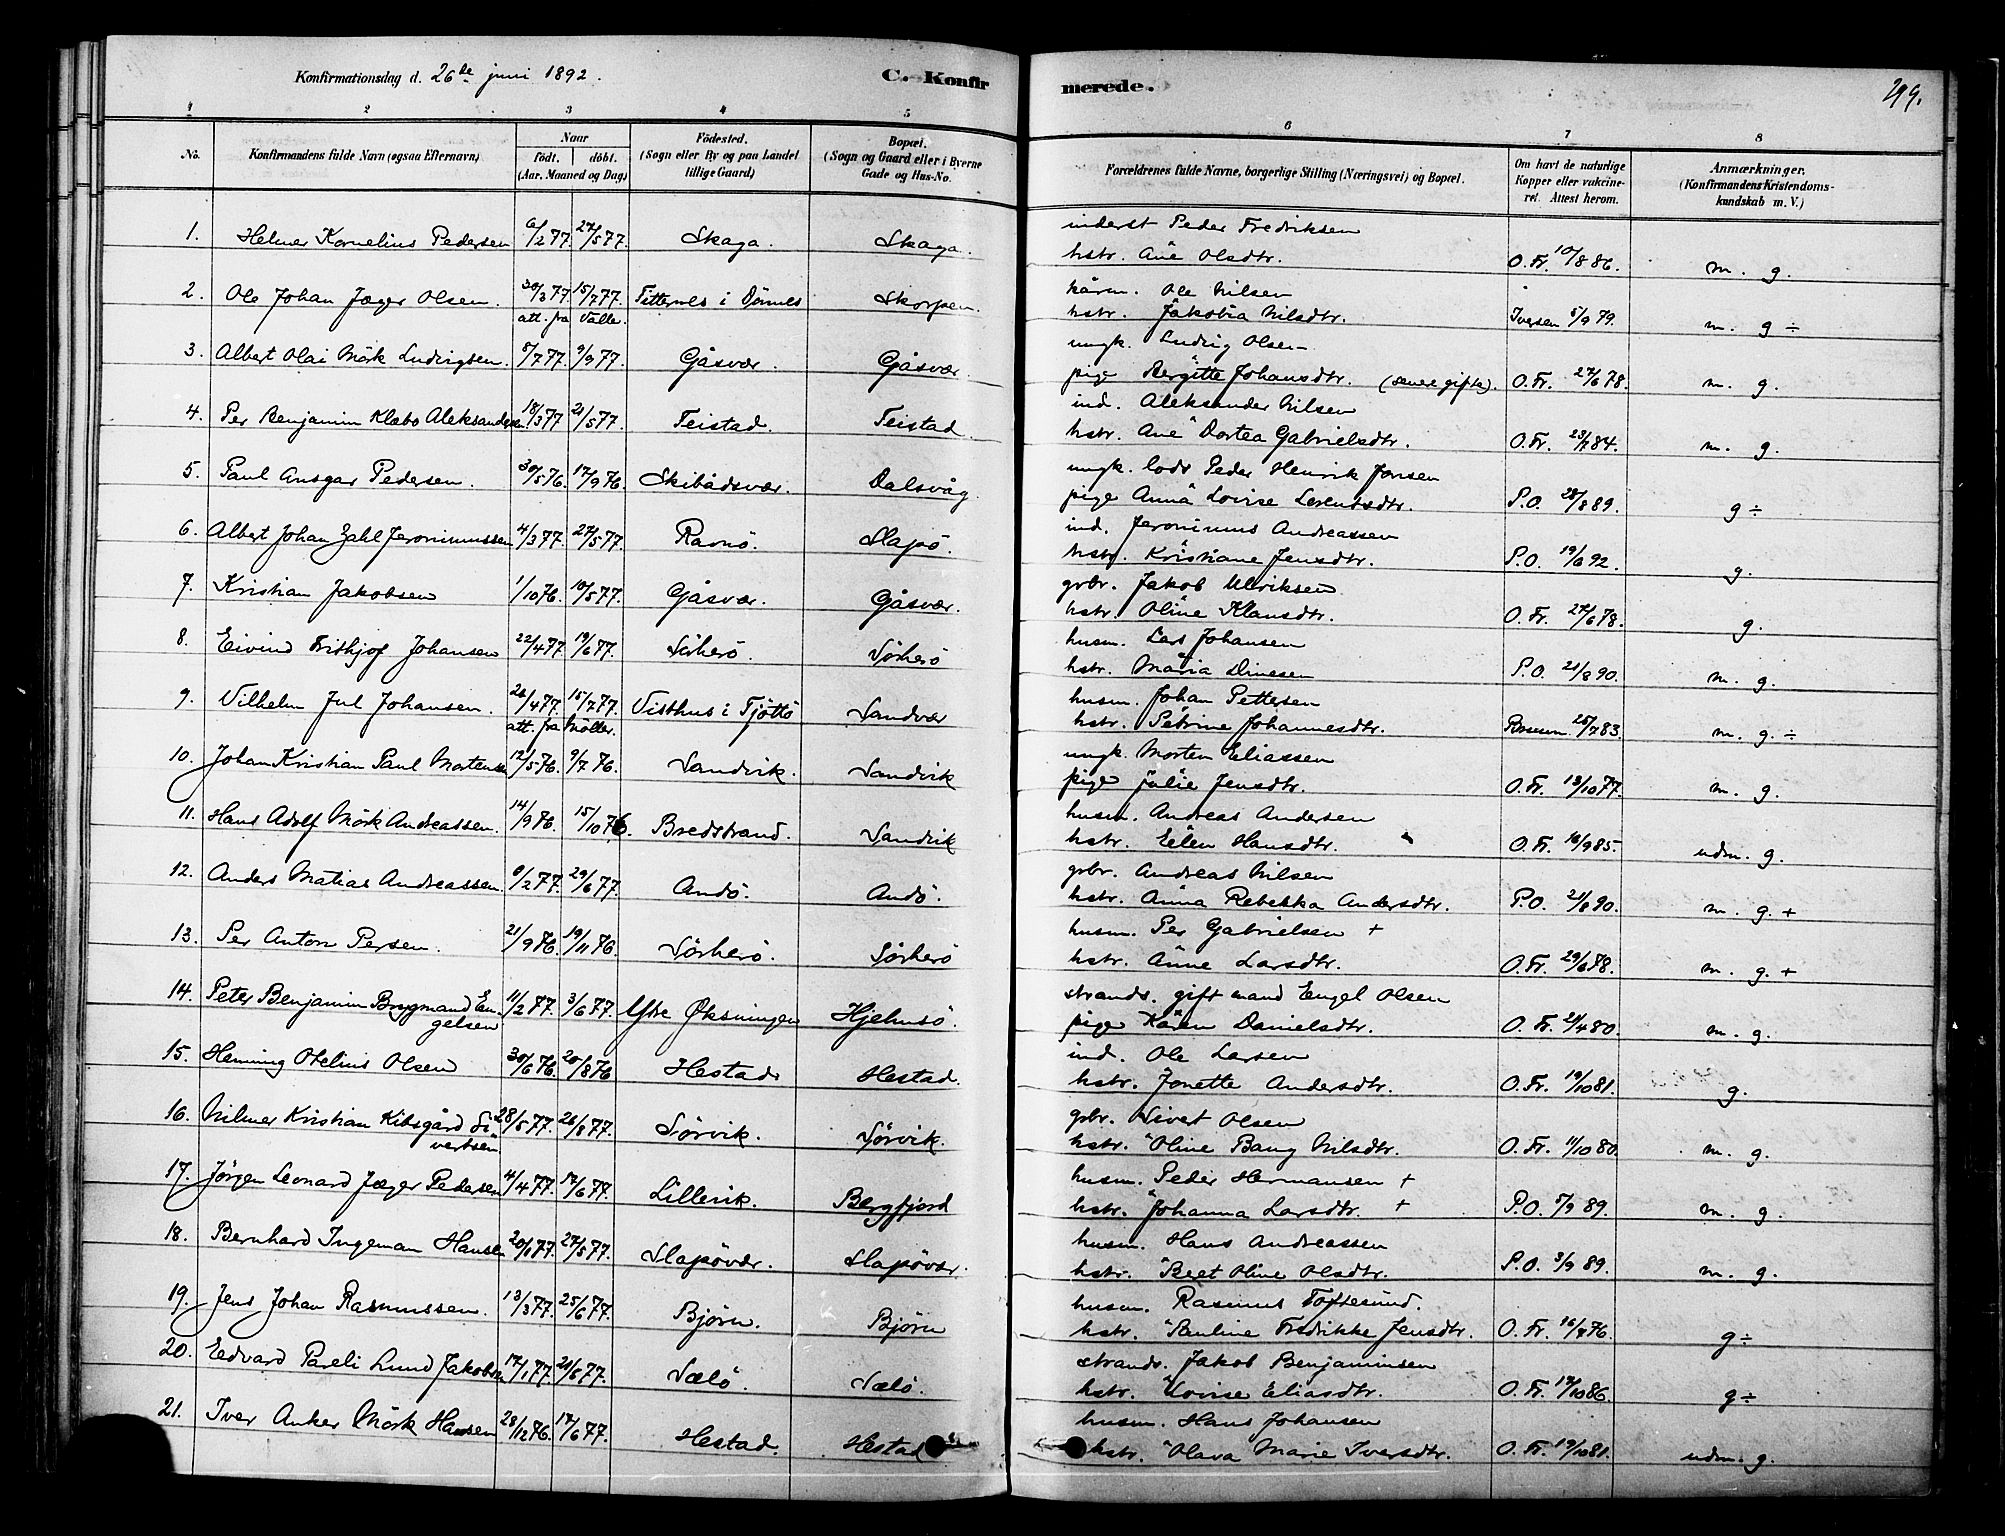 Konfirmationsdag d. 26de juni 1892. C. Konfirmerede. 299.
1 2 3 4 5 6 7 8
No. Konfirmandens fulde Navn (ogsaa Efternavn) Naar födt. döbt. (Aar. Maaned og Dag) Födested. (Sogn eller By og paa Landet tillige Gaard) Bopæl. (Sogn og Gaard eller i Byerne Gade og Hus-No. Forældrenes fulde Navne, borgerlige Stilling (Næringsvei) og Bopæl. Om havt de naturlige Kopper eller vakcineret. Attest herom. Anmærkninger. (Konfirmandens Kristendomskundskab m. V.)
inderst Peder Fredriksen
1. Helmer Kornelius Pedersen 6/2 77. 27/5 77. Skaga. Skaga. hstr. Ane Olsdtr. O. Fr. 10/8 86. m. g.
kårm. Ole Nilsen
2. Ole Johan Jæger Olsen. 30/3 77 15/7 77. Titternes i Dönnes Skorpen. hstr. Jakobia Nilsdtr. Iversen 5/9 79. m. g ÷
att. fra Valle.
ungk. Ludvig Olsen
3. Albert Olai Mörk Ludvigsen. 5/7 77. 9/9 77. Gåsvær. Gåsvær. pige Bergitte Johansdtr. (senere gifte). O. Fr. 27/6 78. m. g.
ind. Aleksander Nilsen
4. Per Benjamin Klæbo Aleksandersen 18/3 77 21/5 77. Teistad. Teistad. hstr. Ane Dortea Gabrielsdtr. O. Fr. 23/7 84. m. g.
ungk. lods Peder Henrik Jonsen
5. Paul Ansgar Pedersen. 30/5 76. 17/9 76. Skibådsvær. Dalsvåg. pige Anna Lovise Lorentsdtr. P.O. 28/8 89. g ÷
ind. Jeronimus Andreassen
6. Albert Johan Zahl Jeronimussen 4/3 77. 27/5 77. Ravnö. Slapö. hstr. Kristiane Jensdtr. P.O. 19/6 92. g.
grbr. Jakob Ulriksen
7. Kristian Jakobsen 1/10 76. 10/5 77. Gåsvær. Gåsvær. hstr. Oline Klausdtr. O. Fr. 27/6 78. g.
husm. Lars Johansen
8. Eivind Fritjof Johansen 22/4 77. 19/6 77. Sörherö. Sörherö hstr. Maria Dinesen P.O. 21/8 90. m. g.
husm. Johan Pettersen
9. Vilhelm Jul Johansen. 28/4 77. 15/7 77. Visthus i Tjöttö Sandvær hstr. Petrine Johannesdtr. 25/7 83. m. g. ÷
att. fra Möller.
ungk. Morten Eliassen
10. Johan Kristian Paul Mortensen 12/5 76. 9/7 76. Sandvik. Sandvik pige Julie Jensdtr. O. Fr. 13/10 77. m. g.
husm. Andreas Andersen
11. Hans Adolf Mörk Andreassen. 14/9 76. 15/10 76. Bredstrand. Sandvik hstr. Ellen Hansdtr. O. Fr. 16/9 85. udm. g.
grbr. Andreas Nilsen
12. Anders Matias Andreassen. 6/2 77. 29/6 77. Andö. Andö. hstr. Anna Rebekka Andersdtr. P.O. 21/8 90. m. g. +
husm. Per Gabrielsen +
13. Per Anton Persen. 21/9 76. 19/11 76. Sörherö. Sörherö hstr. Anne Larsdtr. O. Fr. 29/6 78. m. g. +
strands. gift mand Engel Olsen
14. Peter Benjamin Brygmand Engelsen 11/2 77. 3/6 77. Yttre Øksningen Hjehusö. pige Karen Danielsdtr. O. Fr. 21/4 80. m. g.
ind. Ole Larsen
15. Henning Otelius Olsen 30/6 76. 20/8 76 Hestad. Hestad. hstr. Jonette Andersdtr. O. Fr. 19/10 81. g.
grbr. Sivert Olsen
16. Hilmer Kristian Kibsgård Sivertsen 28/5 77. 26/8 77. Sörvik. Sörvik. hstr. Oline Bang Nilsdtr. O. Fr. 11/10 80. m. g.
husm. Peder Hermansen +
17. Jörgen Leonard Jæger Pedersen 4/4 77. 17/6 77. Lillevik. Bergfjord hstr. Johanna Larsdtr. + P.O. 5/9 89. m. g.
husm. Hans Andreassen
18. Bernhard Ingeman Hansen 20/1 77. 27/5 77. Slapövær. Slapövær. hstr. Beret Oline Olsdtr. P.O. 3/9 89. m. g.
husm. Rasmus Toftesund.
19. Jens Johan Rasmussen. 13/3 77. 25/6 77. Björn. Björn hstr. Pauline Fredrikke Jensdtr. O. Fr. 16/7 76. g ÷
strands. Jakob Benjaminsen
20. Eedvard Pareli Lund Jakobsen 17/1 77. 21/5 77. Sælö. Sælö. hstr. Lovise Eliasdtr. O. Fr. 17/10 86. g ÷
husm. Hans Johansen
21. Iver Anker Mörk Hansen 28/12 76. 17/6 77. Hestad. Hestad hstr. Olava Marie Iversdtr. O. Fr. 19/10 81. udm. g.